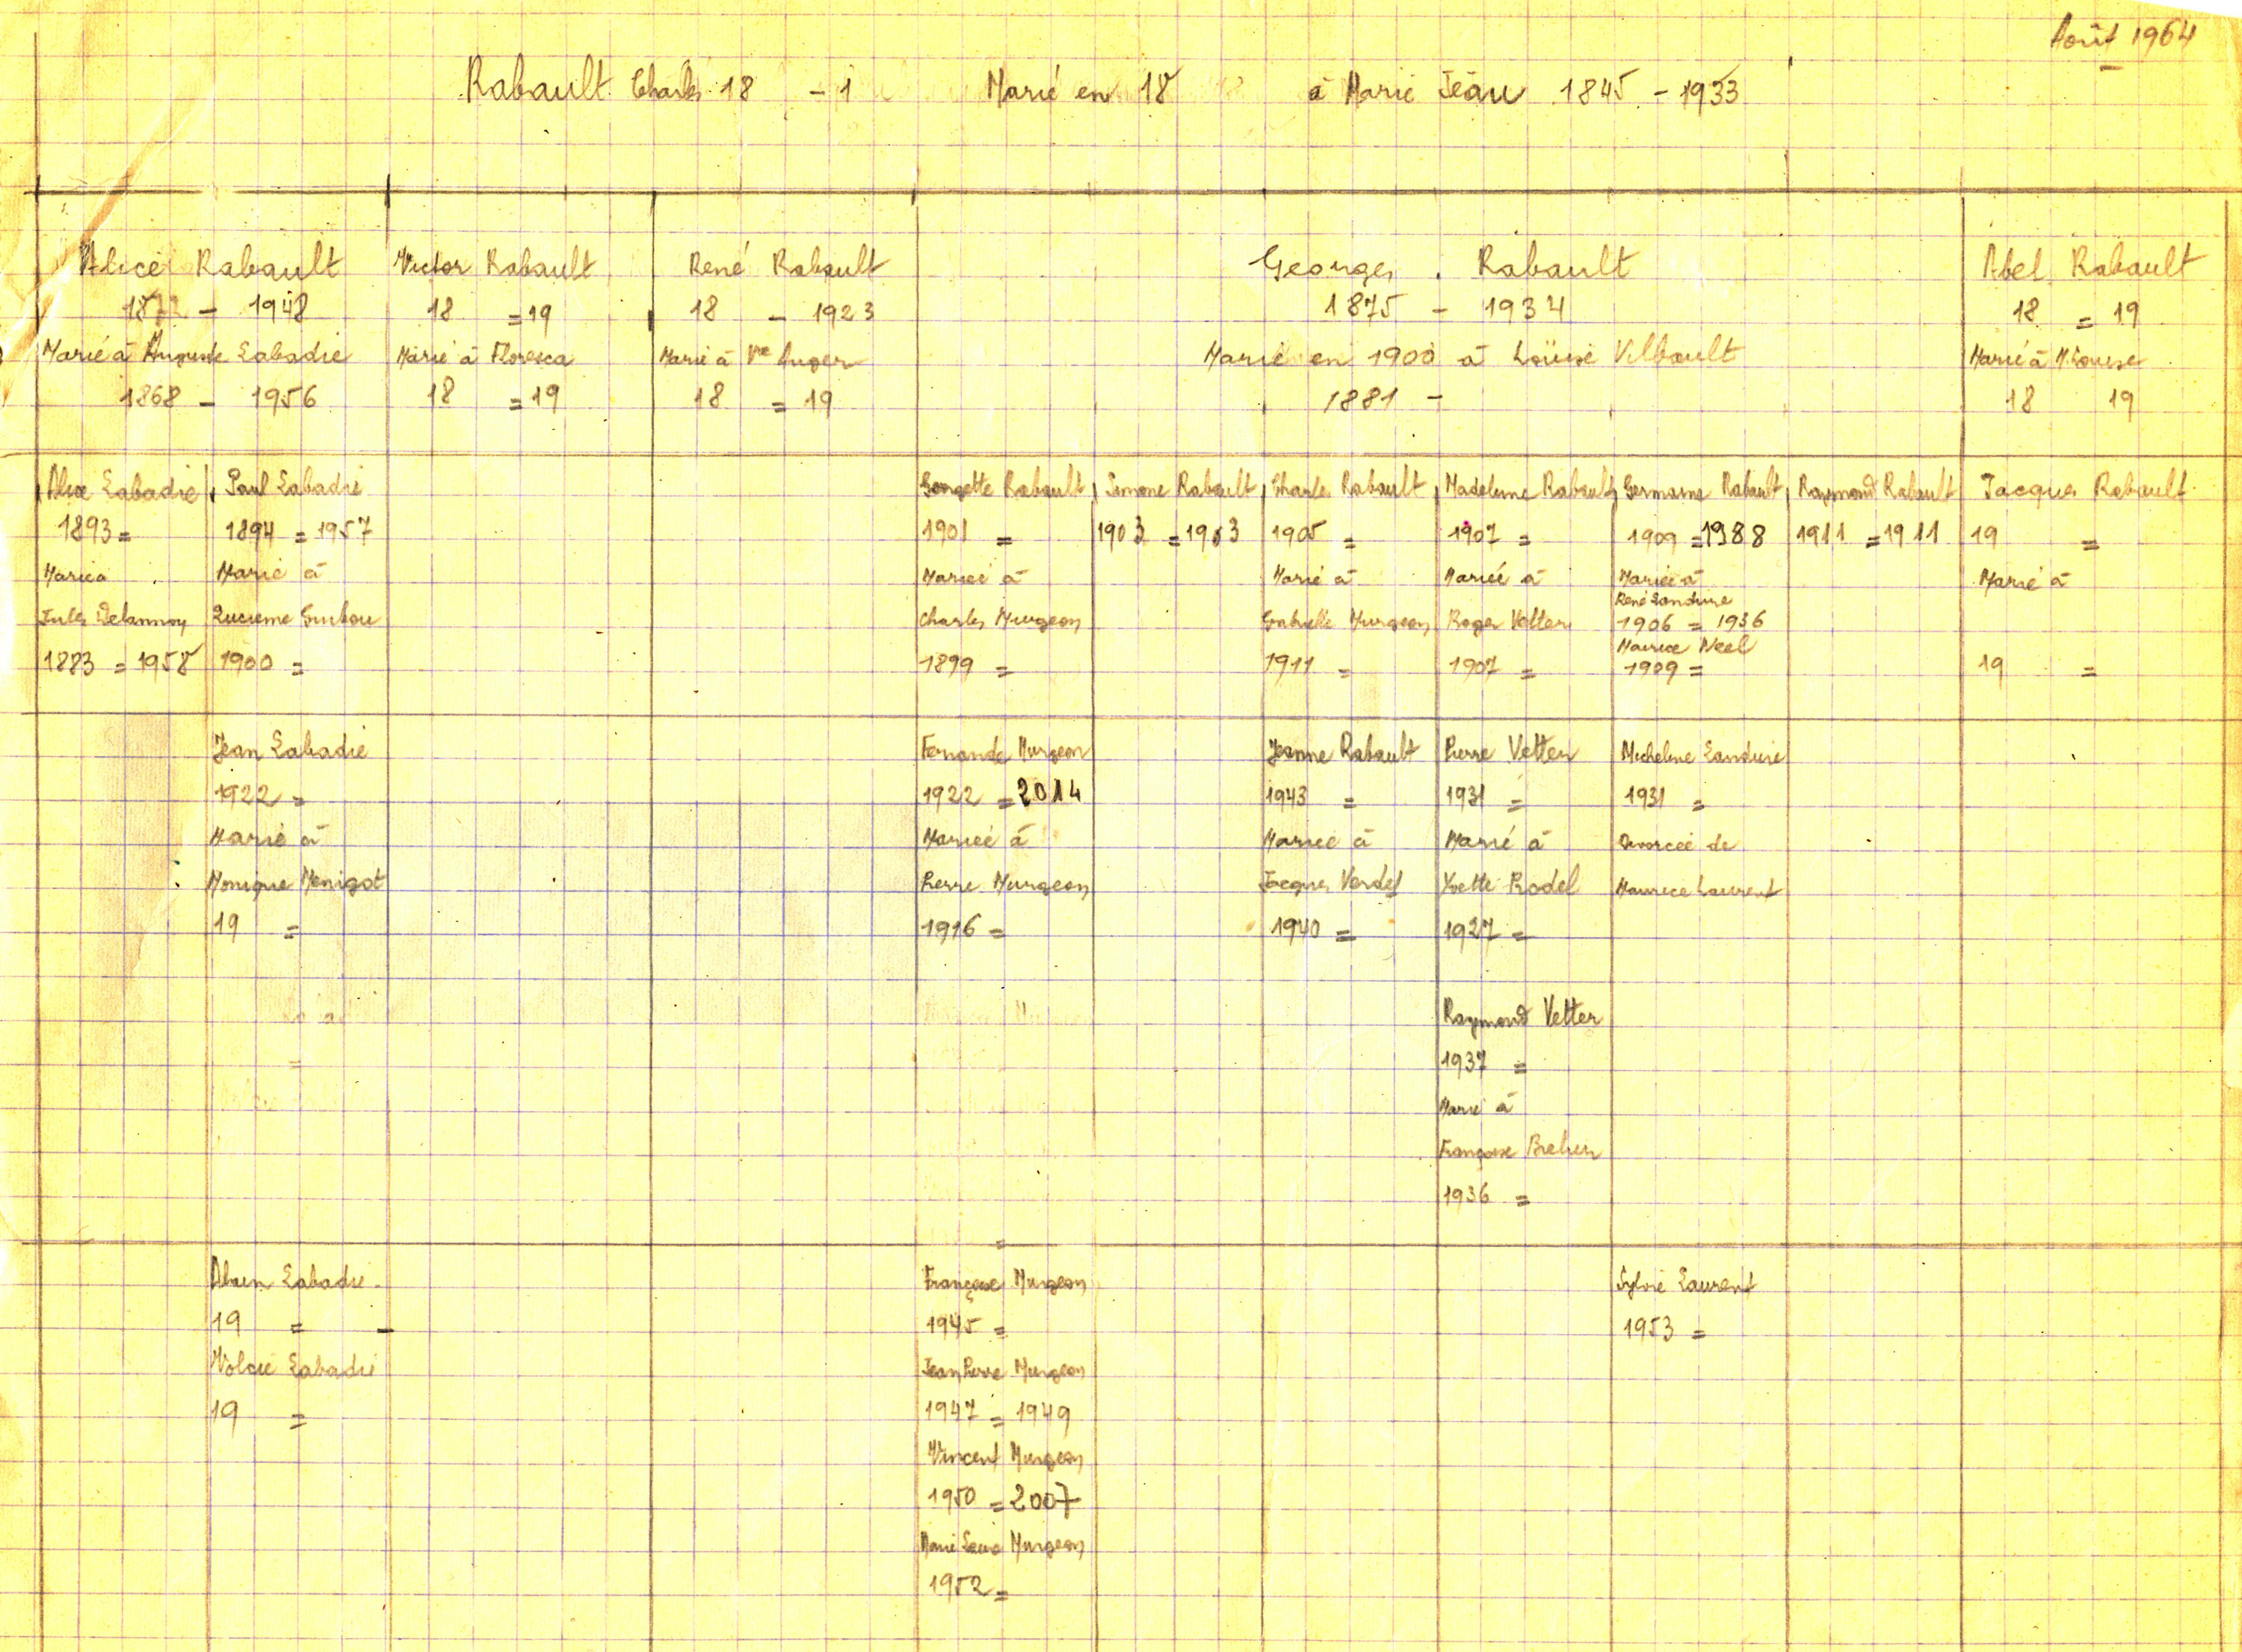 Août 1964
Rabault Charles 18 - 1 Marié en 18 à Marie Jeau 1845 - 1933
Alice Rabault
1872 - 1948
Marié à Auguste Labadie
1868 - 1956
Victor Rabault
18 = 19
Marié à Floresca
18 = 19
René Rabault
18 - 1923
Marié à Vve Auger
18 = 19
Georges Rabault
1875 - 1934
Marié en 1900 à Louise Vilbault
1881 -
Abel Rabault
18 = 19
Marié à M.Louise
18 19
Alice Labadie
1893 =
Mariéà
Jules Delannoy
1883 = 1958
Paul Labadie
1894 = 1957
Marié à
Lucienne
1900 =
Georgette Rabault
1901 =
Mariée à
Charles Murgeon
1899 =
Simone Rabault
1903 = 1903
Charles Rabault
1905 =
Marié à
Gabrielle Murgeon
1911 =
Madeleine Rabault
1907 =
Mariée à
Roger Vetter
1907 =
Germaine Rabault
1909 = 1988
Mariée à
René Landure
1906 = 1936
Maurice Neel
1909 =
Raymond Rabault
1911 = 1911
Jacques Rabault
19 =
Marié à
19 =
Jean Labadie
1922 =
Marié à
Monique Menigot
19 =
Fernande Murgeon
1922 = 2014
Mariée à
Pierre Murgeon
1916 =
Jeanne Rabault
1943 =
Mariée à
Jacques Verdef
1940 =
Pierre Vetter
1931 =
Marié à
Yvette Rodel
1927 =
Raymond Vetter
1937 =
Marié à
Françoise
1936 =
Micheline Landure
1931 =
Divorcée de
Maurice Laurent
Alain Labadie
19 = -
Labadie
19 =
Françoise Murgeon
1945 =
Jean Pierre Murgeon
1947 = 1949
Vincent Murgeon
1950 = 2007
Marie Laure Murgeon
1952 =
Sylvie Laurent
1953 =